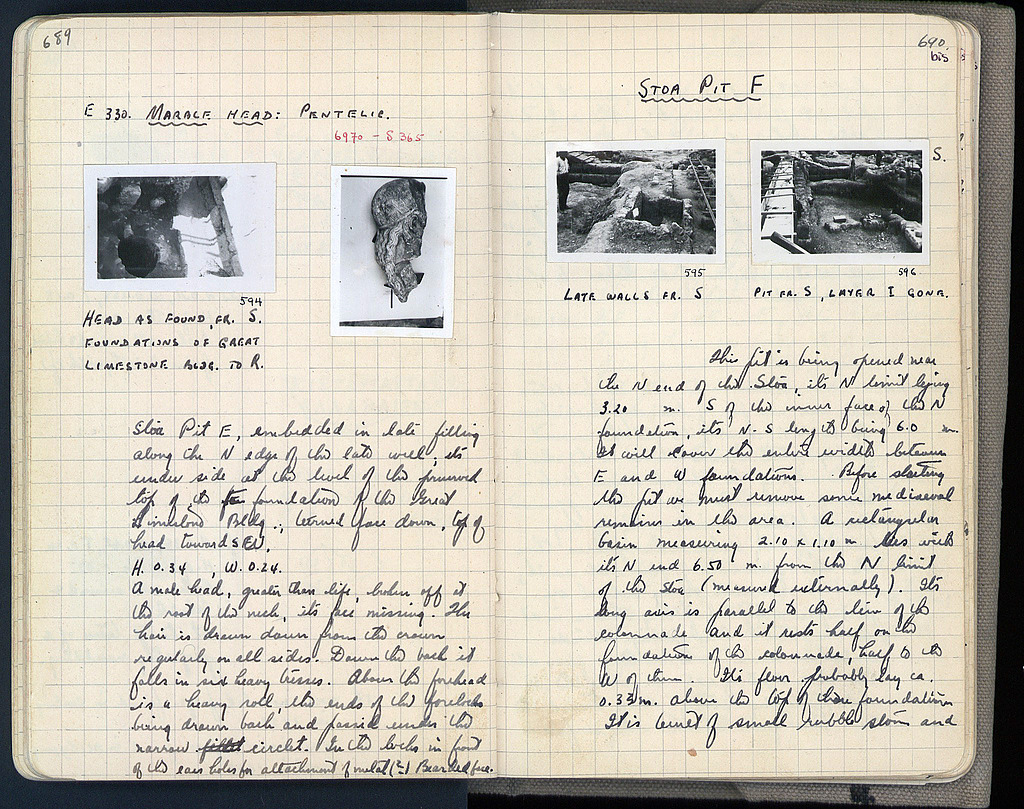 689
E 330. MARBLE HEAD: PENTELIC.
6970 - S 365
594
HEAD AS FOUND, FR. S.
FOUNDATIONS OF GREAT
LIMESTONE BLDG. TO R.
Stoa Pit E, embedded in late filling
along the N edge of the late well; its
under side at the level of the preserved
top of the foundation of the Great
Limestone Bldg.; turned face down, top of
head toward SW.
H. 0.34 , W. 0.24.
A male head, greater than life, broken off at
the root of the neck, its face missing. The
hair is drawn down from the crown
regularly on all sides. Down the back it
falls in six heavy tresses. Above the forehead
is a heavy roll, the ends of the forelocks
being drawn back and passed under the
narrow fillet circlet. In the locks in front
of the ears holes for attachment of metal (?) Bearded face.
690
bis
STOA PIT F
S.
595
LATE WALLS FR. S
596
PIT FR. S, LAYER I GONE.
This pit is being opened near
the N end of the Stoa, its N limit lying
3.20 m. S of the inner face of the N
foundation, its N-S length being 6.0 m.
It will cover the entire width between
E and W foundations. Before starting
the pit we must remove some mediaeval
remains in the area. A rectangular
basin measuring 2.10 x 1.10 m. lies with
its N end 6.50 m. from the N limit
of the Stoa (measured externally). Its
long axis is parallel to the line of the
colonnade and it rests half on the
foundation of the colonnade, half to the
W of them. Its floor probably lay ca.
0.33 m. above the top of these foundations
It is built of small rubble stone and